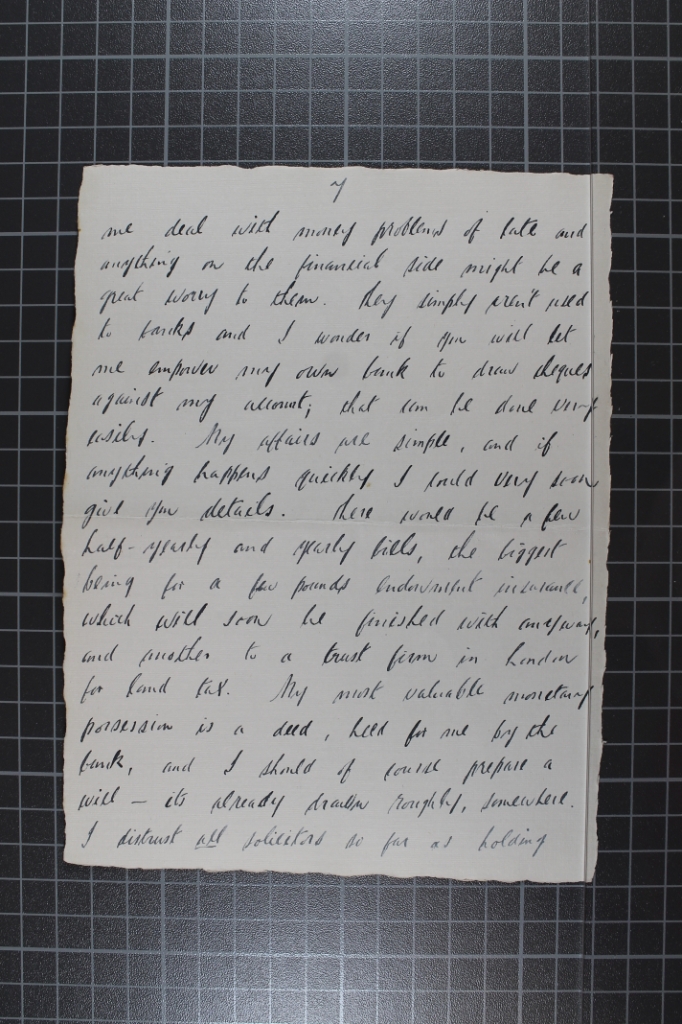 7
me deal with money problems of late and
anything on the financial side might be a
great worry to them. They simply aren't used
to banks and I wonder if you will let
me empower my own bank to draw cheques
against my account; that can be done very
easily. My affairs are simple, and if
anything happens quickly I could very soon
give you details. There would be a few
half-yearly and yearly bills, the biggest
being for a few pounds endowment insurance,
which will soon be finished with anyway,
and another to a trust firm in London
for land tax. My most valuable monetary
possession is a deed, held for me by the
bank, and I should of course prepare a
will — its already drawn roughly, somewhere.
I distrust all solicitors so far as holding